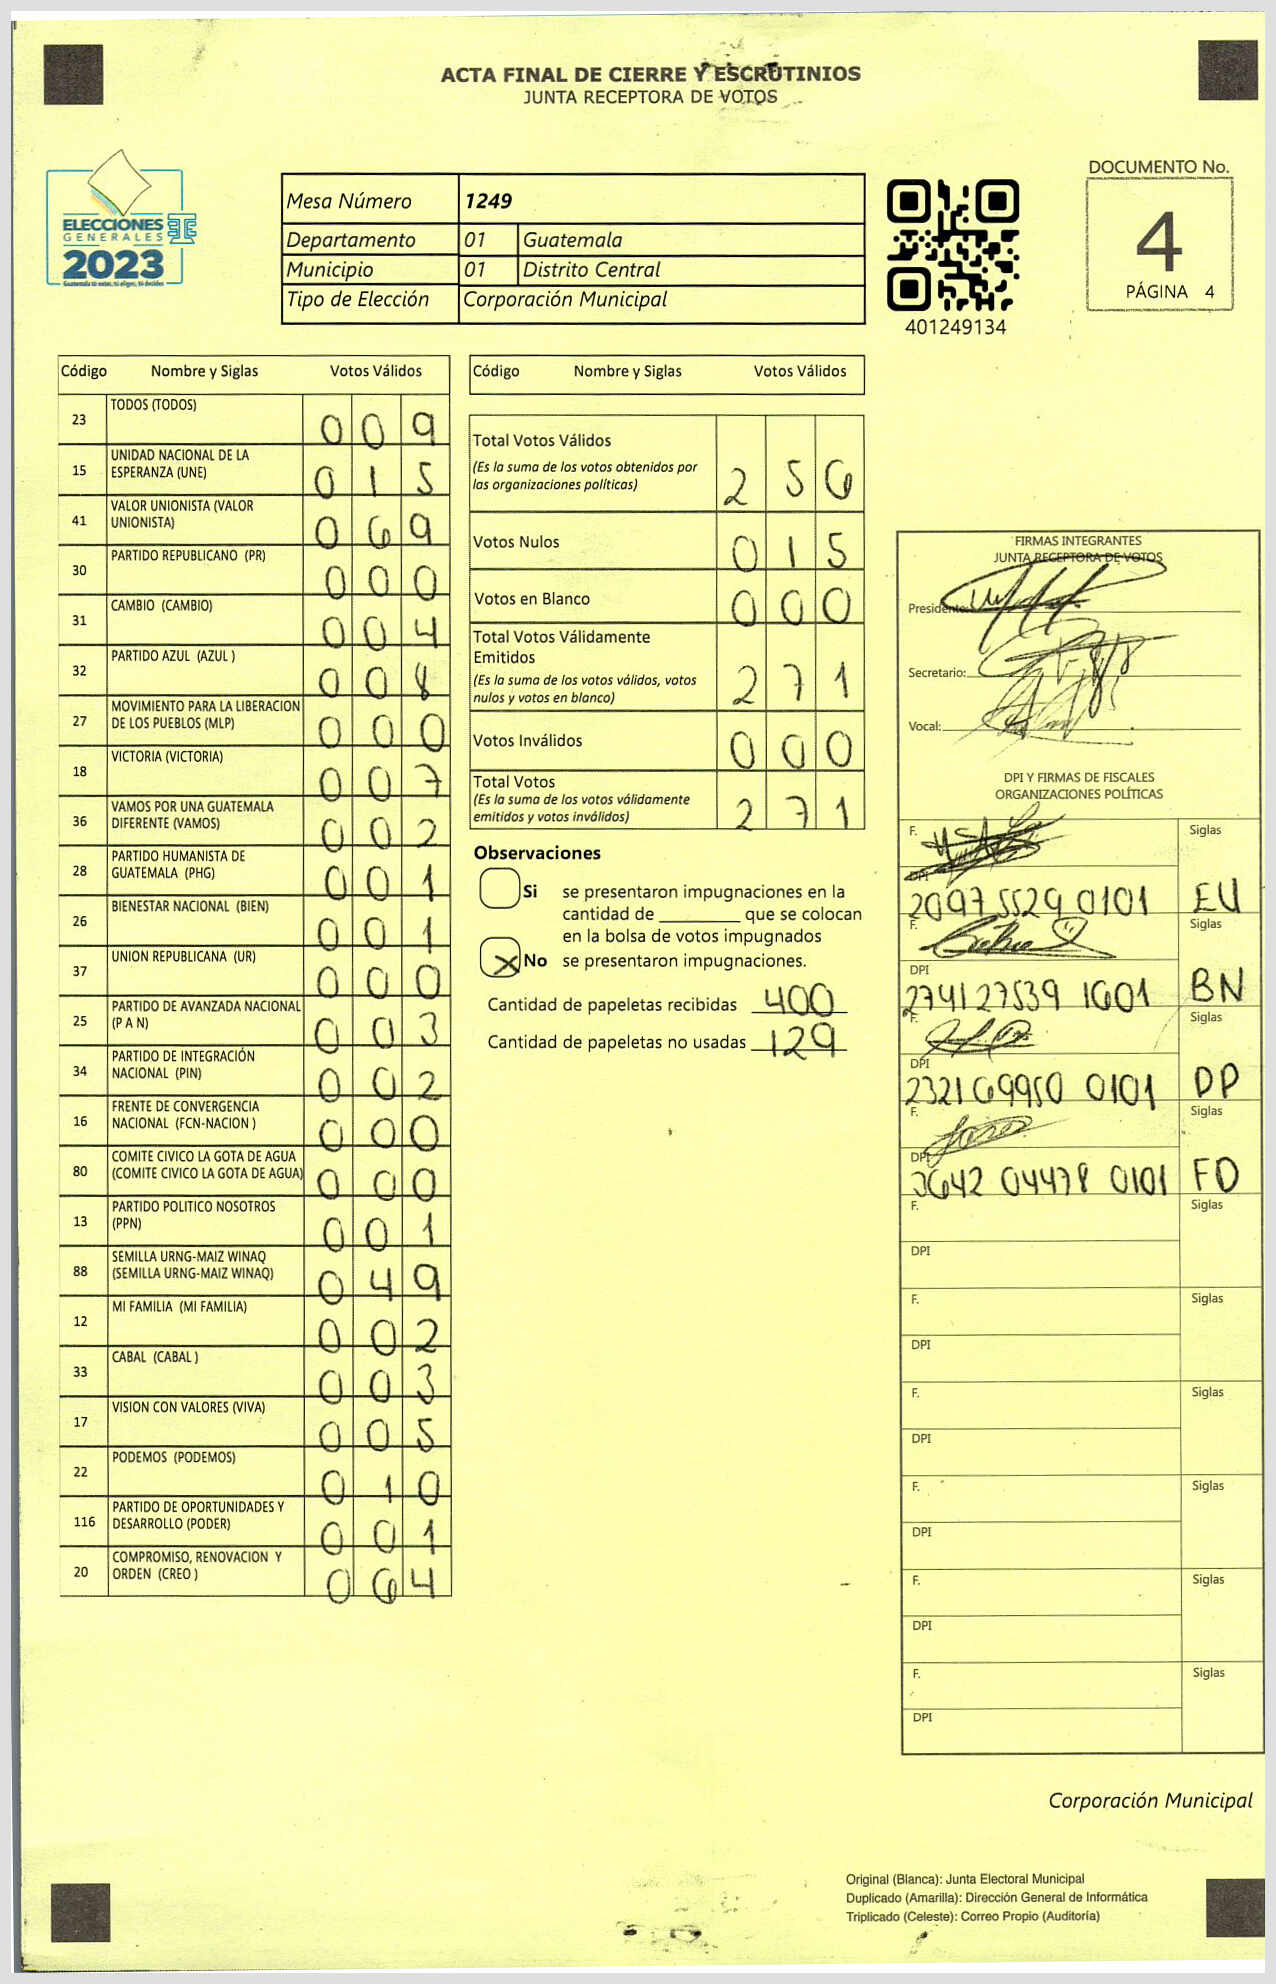 ACTA FINAL DE CIERRE Y ESCRUTINIOS
JUNTA RECEPTORA DE VOTOS
ELECCIONES
GENERALES
2023
Guatemala tú votas, tú eliges, tú decides
Mesa Número 1249
Departamento 01 Guatemala
Municipio 01 Distrito Central
Tipo de Elección Corporación Municipal
401249134
DOCUMENTO No.
4
PÁGINA 4
Código Nombre y Siglas Votos Válidos
23 TODOS (TODOS) 0 0 9
15 UNIDAD NACIONAL DE LA
ESPERANZA (UNE) 0 1 5
41 VALOR UNIONISTA (VALOR
UNIONISTA) 0 6 9
30 PARTIDO REPUBLICANO (PR) 0 0 0
31 CAMBIO (CAMBIO) 0 0 4
32 PARTIDO AZUL (AZUL ) 0 0 8
27 MOVIMIENTO PARA LA LIBERACION
DE LOS PUEBLOS (MLP) 0 0 0
18 VICTORIA (VICTORIA) 0 0 7
36 VAMOS POR UNA GUATEMALA
DIFERENTE (VAMOS) 0 0 2
28 PARTIDO HUMANISTA DE
GUATEMALA (PHG) 0 0 1
26 BIENESTAR NACIONAL (BIEN) 0 0 1
37 UNION REPUBLICANA (UR) 0 0 0
25 PARTIDO DE AVANZADA NACIONAL
(P A N) 0 0 3
34 PARTIDO DE INTEGRACIÓN
NACIONAL (PIN) 0 0 2
16 FRENTE DE CONVERGENCIA
NACIONAL (FCN-NACION ) 0 0 0
80 COMITE CIVICO LA GOTA DE AGUA
(COMITE CIVICO LA GOTA DE AGUA) 0 0 0
13 PARTIDO POLITICO NOSOTROS
(PPN) 0 0 1
88 SEMILLA URNG-MAIZ WINAQ
(SEMILLA URNG-MAIZ WINAQ) 0 4 9
12 MI FAMILIA (MI FAMILIA) 0 0 2
33 CABAL (CABAL ) 0 0 3
17 VISION CON VALORES (VIVA) 0 0 5
22 PODEMOS (PODEMOS) 0 1 0
116 PARTIDO DE OPORTUNIDADES Y
DESARROLLO (PODER) 0 0 1
20 COMPROMISO, RENOVACION Y
ORDEN (CREO ) 0 6 4
Código Nombre y Siglas Votos Válidos
Total Votos Válidos
(Es la suma de los votos obtenidos por
las organizaciones políticas) 2 5 6
Votos Nulos 0 1 5
Votos en Blanco 0 0 0
Total Votos Válidamente
Emitidos
(Es la suma de los votos válidos, votos
nulos y votos en blanco) 2 7 1
Votos Inválidos 0 0 0
Total Votos
(Es la suma de los votos válidamente
emitidos y votos inválidos) 2 7 1
Observaciones
Si se presentaron impugnaciones en la
cantidad de ________ que se colocan
en la bolsa de votos impugnados
X No se presentaron impugnaciones.
Cantidad de papeletas recibidas 400
Cantidad de papeletas no usadas 129
FIRMAS INTEGRANTES
JUNTA RECEPTORA DE VOTOS
Presidente:
Secretario:
Vocal:
DPI Y FIRMAS DE FISCALES
ORGANIZACIONES POLÍTICAS
F. Siglas
DPI
20975529 0101 EU
F. Siglas
DPI
274127539 1601 BN
F. Siglas
DPI
232169950 0101 DP
F. Siglas
DPI
3642 04478 0101 FD
F. Siglas
DPI
F. Siglas
DPI
F. Siglas
DPI
F. Siglas
DPI
F. Siglas
DPI
F. Siglas
DPI
Corporación Municipal
Original (Blanca): Junta Electoral Municipal
Duplicado (Amarilla): Dirección General de Informática
Triplicado (Celeste): Correo Propio (Auditoría)